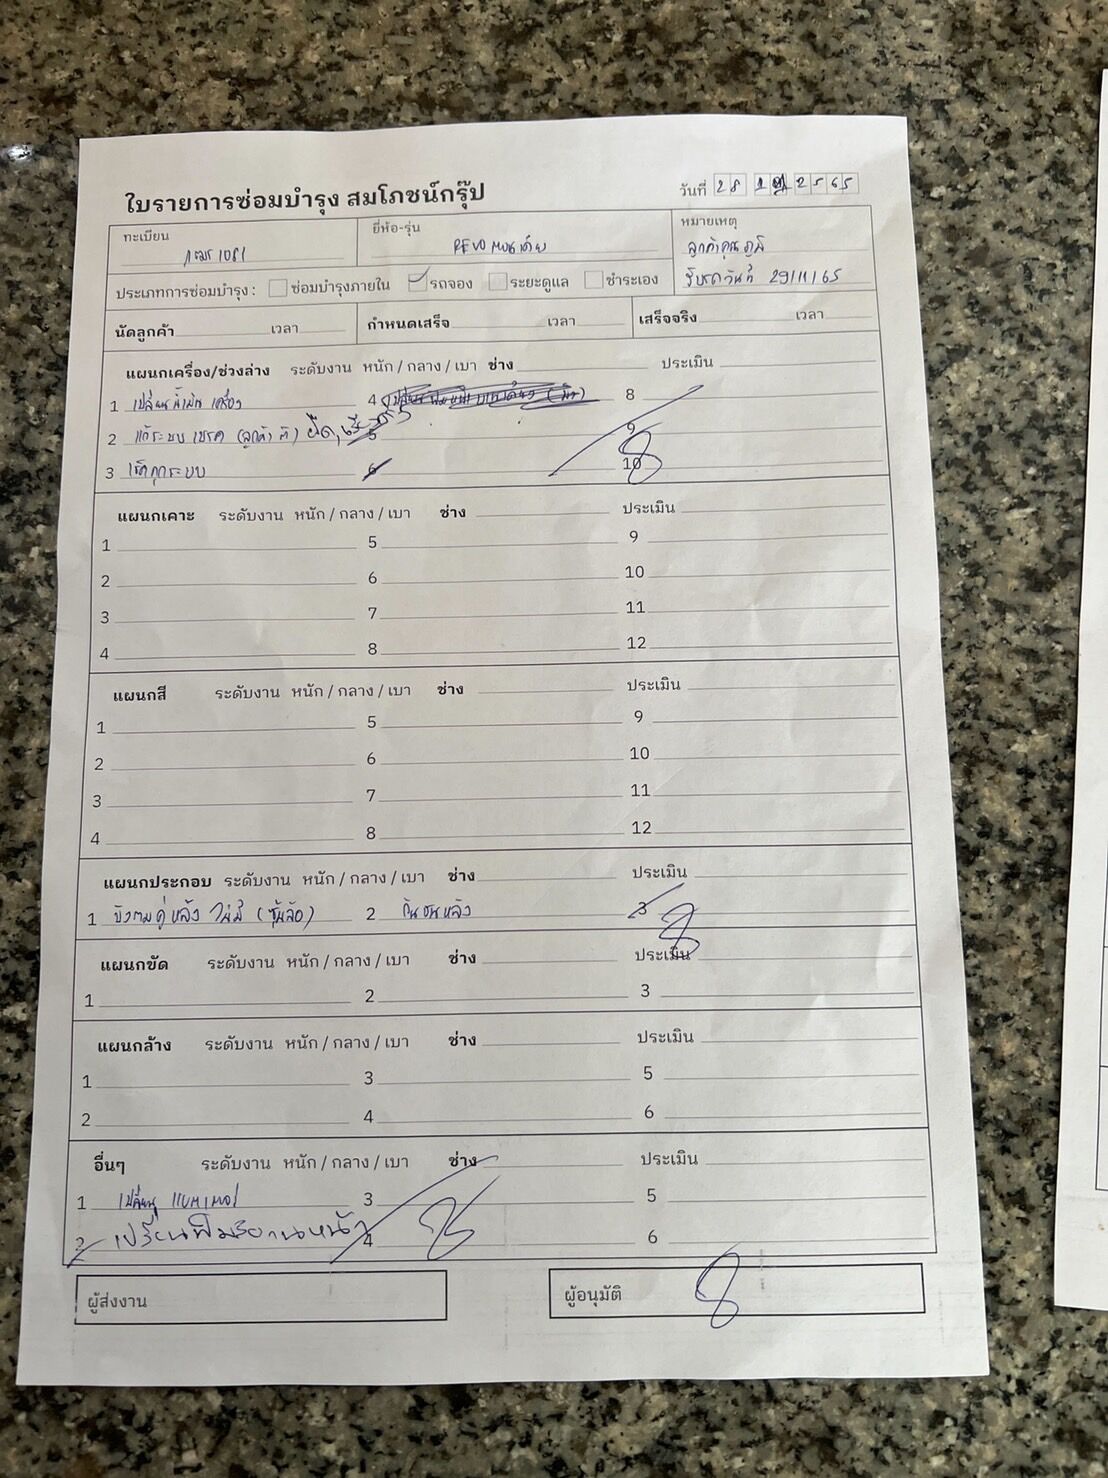 ใบรายการซ่อมบำรุง สมโภชน์กรุ๊ป
วันที่ 28 2565
ทะเบียน
ยี่ห้อ-รุ่น REVO ตอนเดียว
หมายเหตุ
ลูกค้าคุณภูมิ
รับรถวันที่ 29/11/65
ประเภทการซ่อมบำรุง : ซ่อมบำรุงภายใน รถจอง ระยะดูแล ชำระเอง
นัดลูกค้า เวลา กำหนดเสร็จ เวลา เสร็จจริง เวลา
แผนกเครื่อง/ช่วงล่าง ระดับงาน หนัก / กลาง / เบา ช่าง ประเมิน
1 เปลี่ยนน้ำมันเครื่อง 4 8
2 แก้ระบบเบรค (ลูกค้า 5 9
3 เช็คทุกระบบ 6 10
แผนกเคาะ ระดับงาน หนัก / กลาง / เบา ช่าง ประเมิน
1 5 9
2 6 10
3 7 11
4 8 12
แผนกสี ระดับงาน หนัก / กลาง / เบา ช่าง ประเมิน
1 5 9
2 6 10
3 7 11
4 8 12
แผนกประกอบ ระดับงาน หนัก / กลาง / เบา ช่าง ประเมิน
1 บังตมคู่หลัง ไม่มี (ซุ้มล้อ) 2 กันชนหลัง 3
แผนกขัด ระดับงาน หนัก / กลาง / เบา ช่าง ประเมิน
1 2 3
แผนกล้าง ระดับงาน หนัก / กลาง / เบา ช่าง ประเมิน
1 3 5
2 4 6
อื่นๆ ระดับงาน หนัก / กลาง / เบา ช่าง ประเมิน
1 เปลี่ยนแบตเตอรี่ 3 5
2 4 6
ผู้ส่งงาน ผู้อนุมัติ